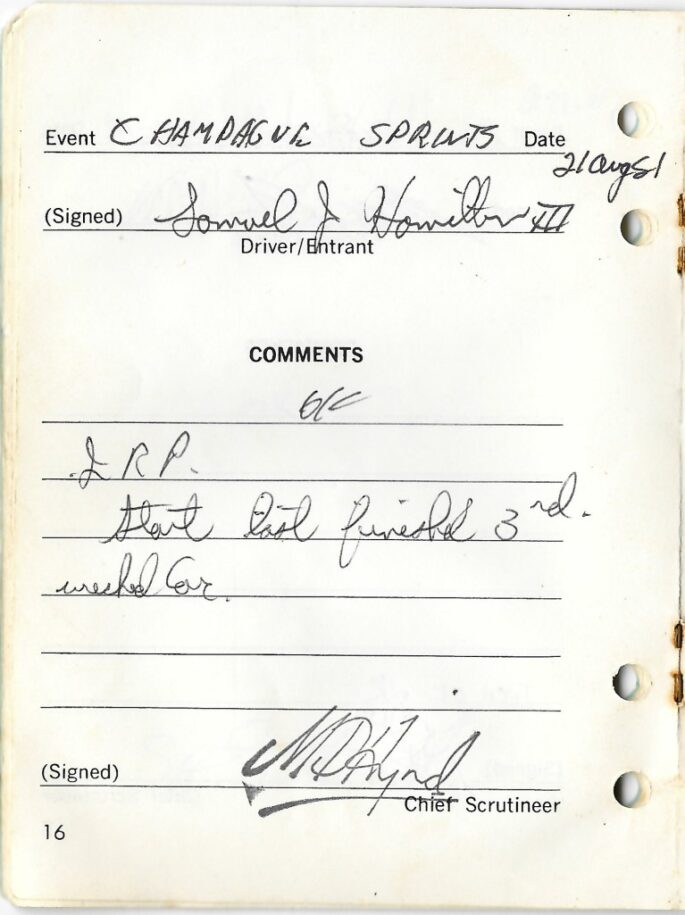 Event CHAMPAGUE SPRINTS Date
21 Aug 81
(Signed) Samuel J Hamilton III
Driver/Entrant
COMMENTS
OK
I R P.
Start last finished 3rd.
wrecked Car.
(Signed)
Chief Scrutineer
16